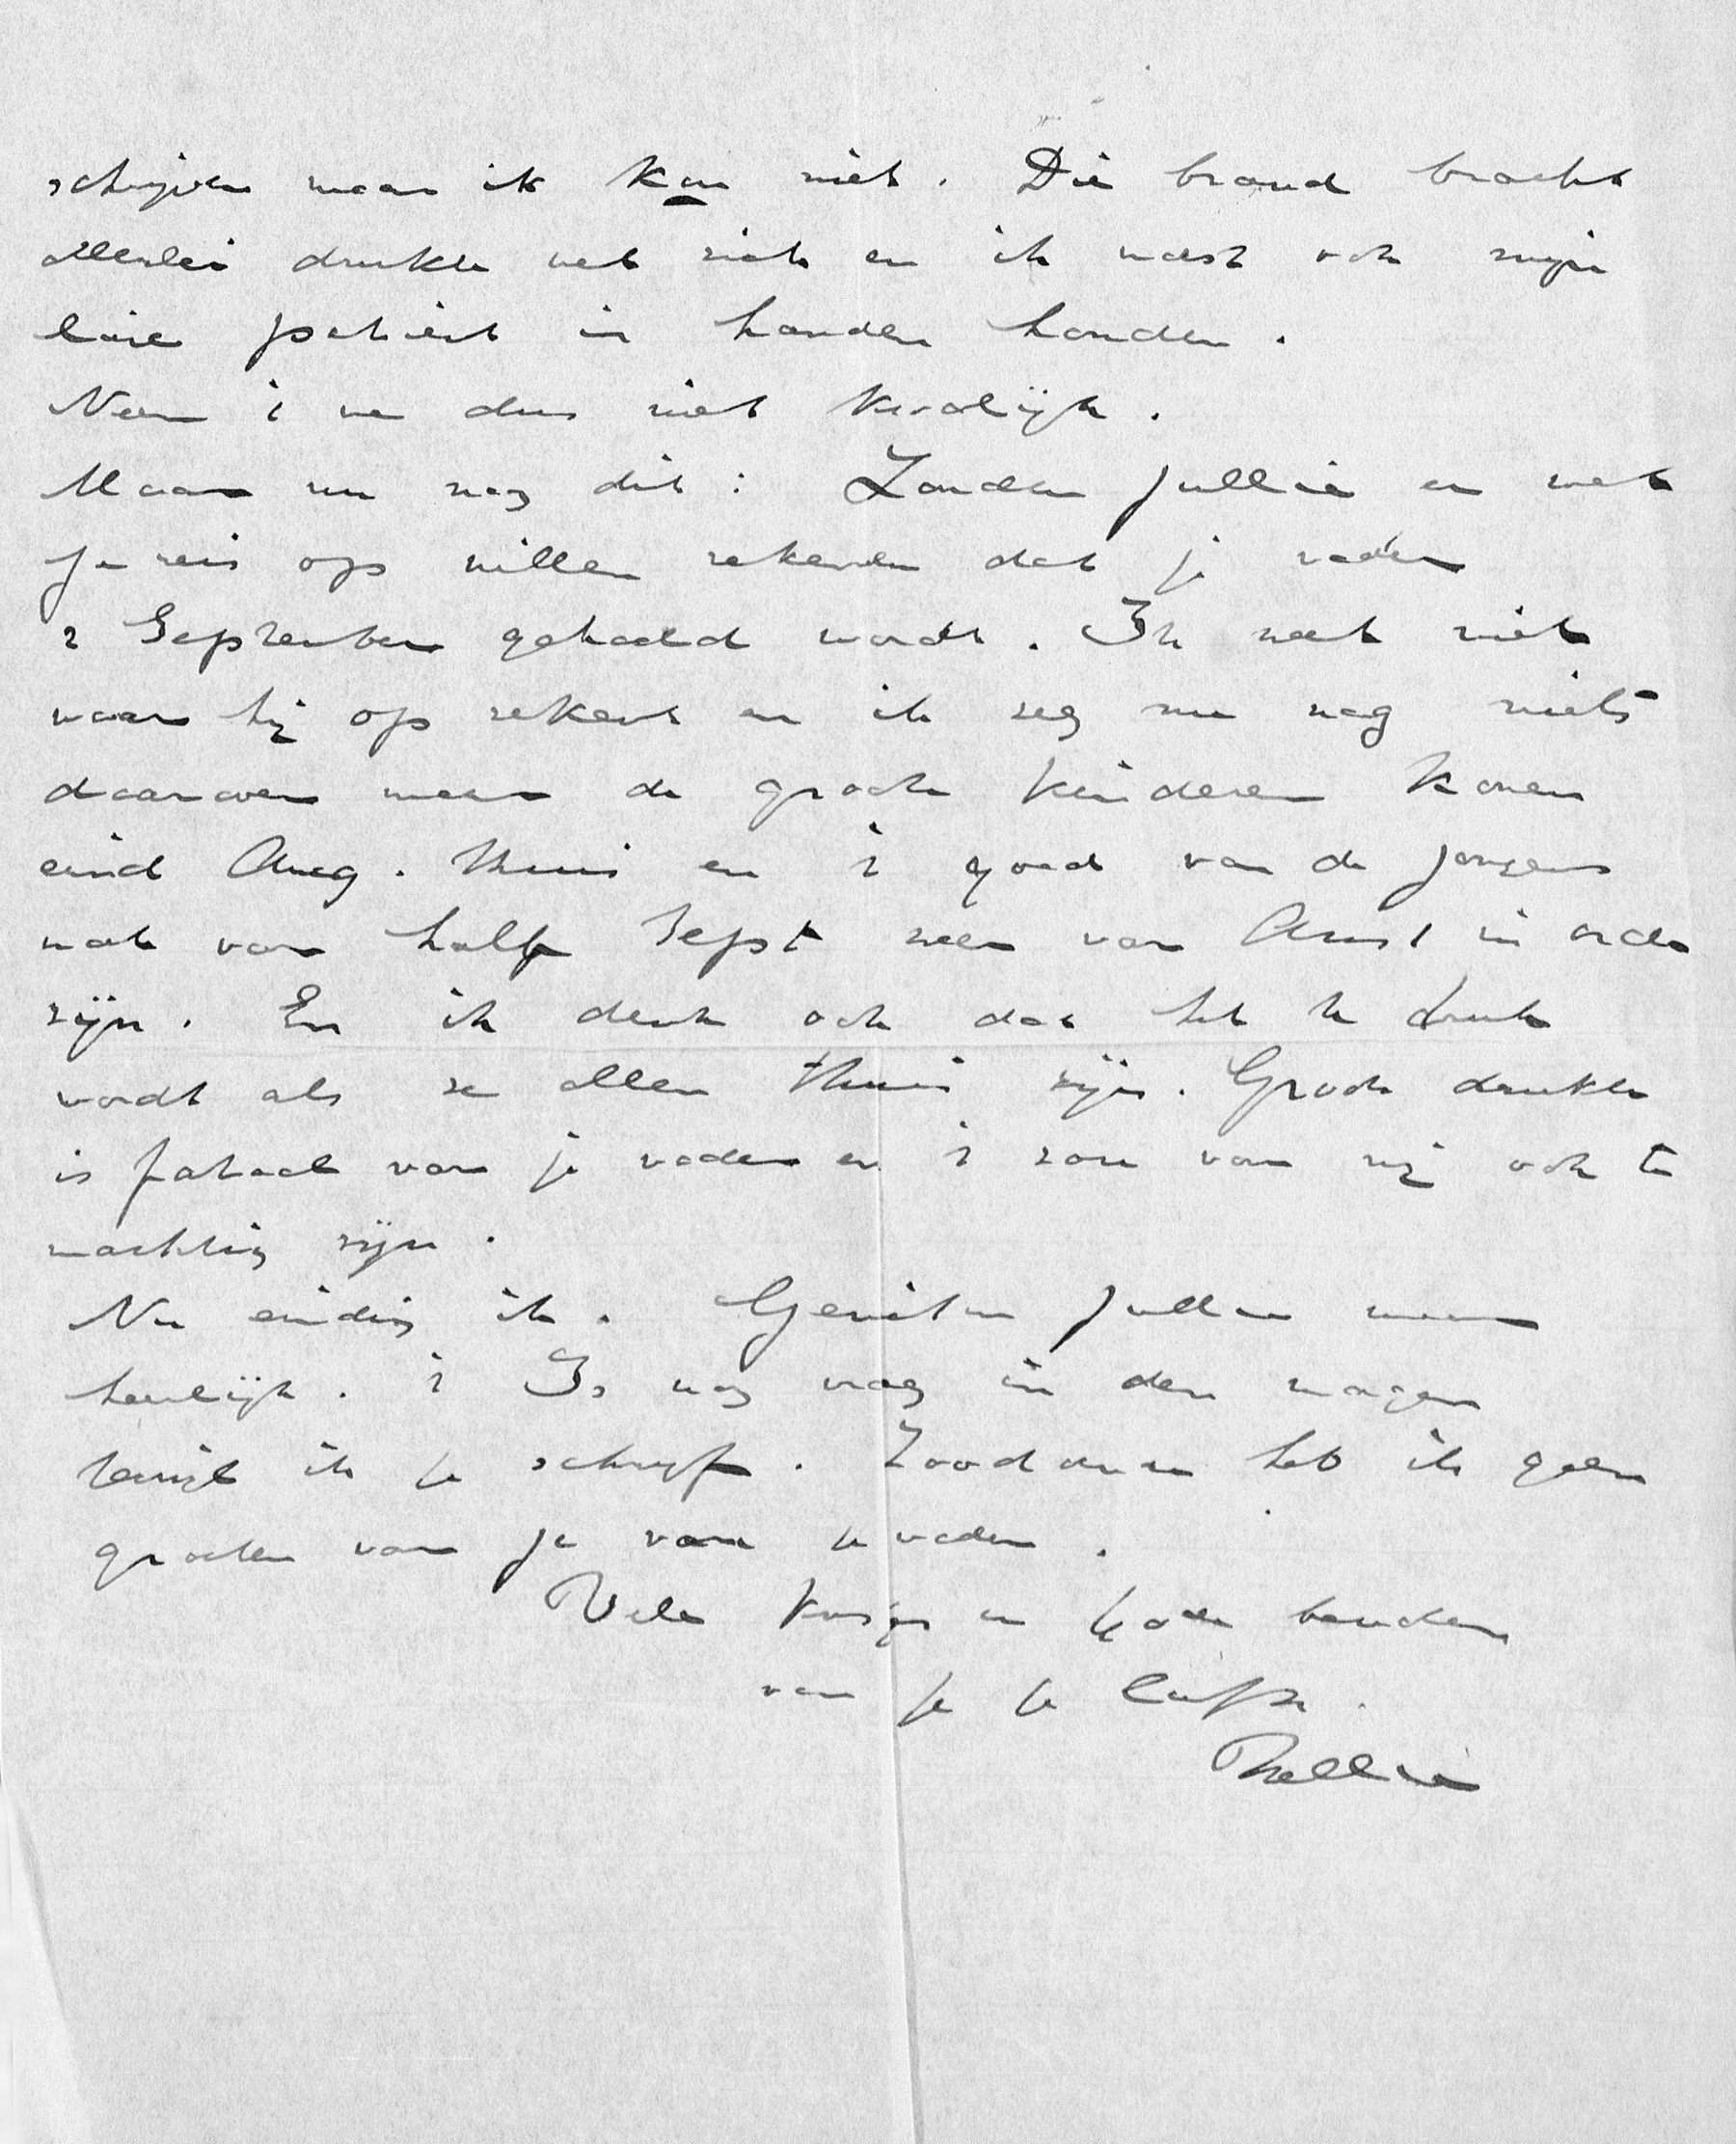 schrijven maar ik kon niet. Die brand bracht
allerlei drukte met zich en ik moest ook mijn
patient in handen houden.
Neem 't me dus niet kwalijk.
Maar nu nog dit: Zouden jullie er met
je reis op willen rekenen dat je vader
1 September gehaald wordt. Ik weet niet
waar hij op rekent en ik zeg nu nog niets
daarover maar de groote kinderen komen
eind Aug. thuis en 't goed van de jongens
moet voor half Sept weer voor Amst in orde
zijn. En ik denk ook dat het te druk
wordt als ze allen thuis zijn. Groote drukte
is fataal voor je vader en 't zou voor mij ook te
machtig zijn.
Nu eindig ik. Genieten jullie maar
heerlijk. 't Is nog vroeg in den morgen
terwijl ik je schrijf. Zoodoende heb ik geen
groeten voor je van je vader.
Vele kusjes en handen
van je je